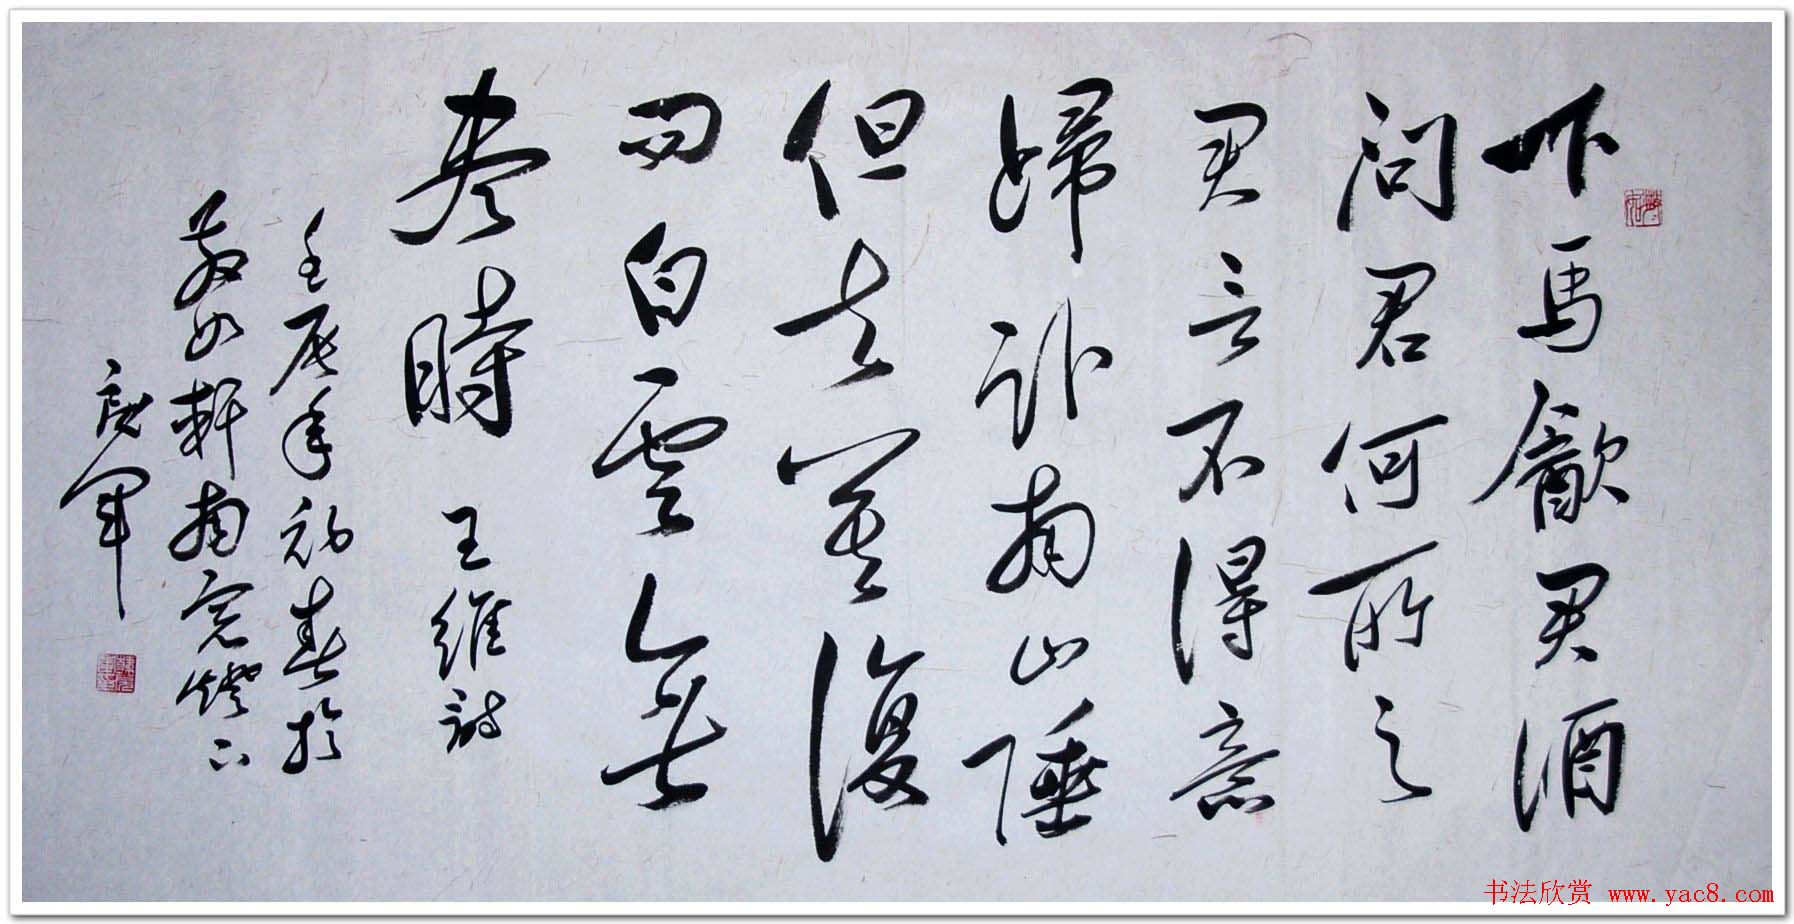 下馬飲君酒
問君何所之
君言不得意
歸卧南山陲
但去莫復
问白雲無
盡時 王維詩
壬辰年初春於
散如軒南窗燈下
庆军
书法欣赏 www.yac8.com